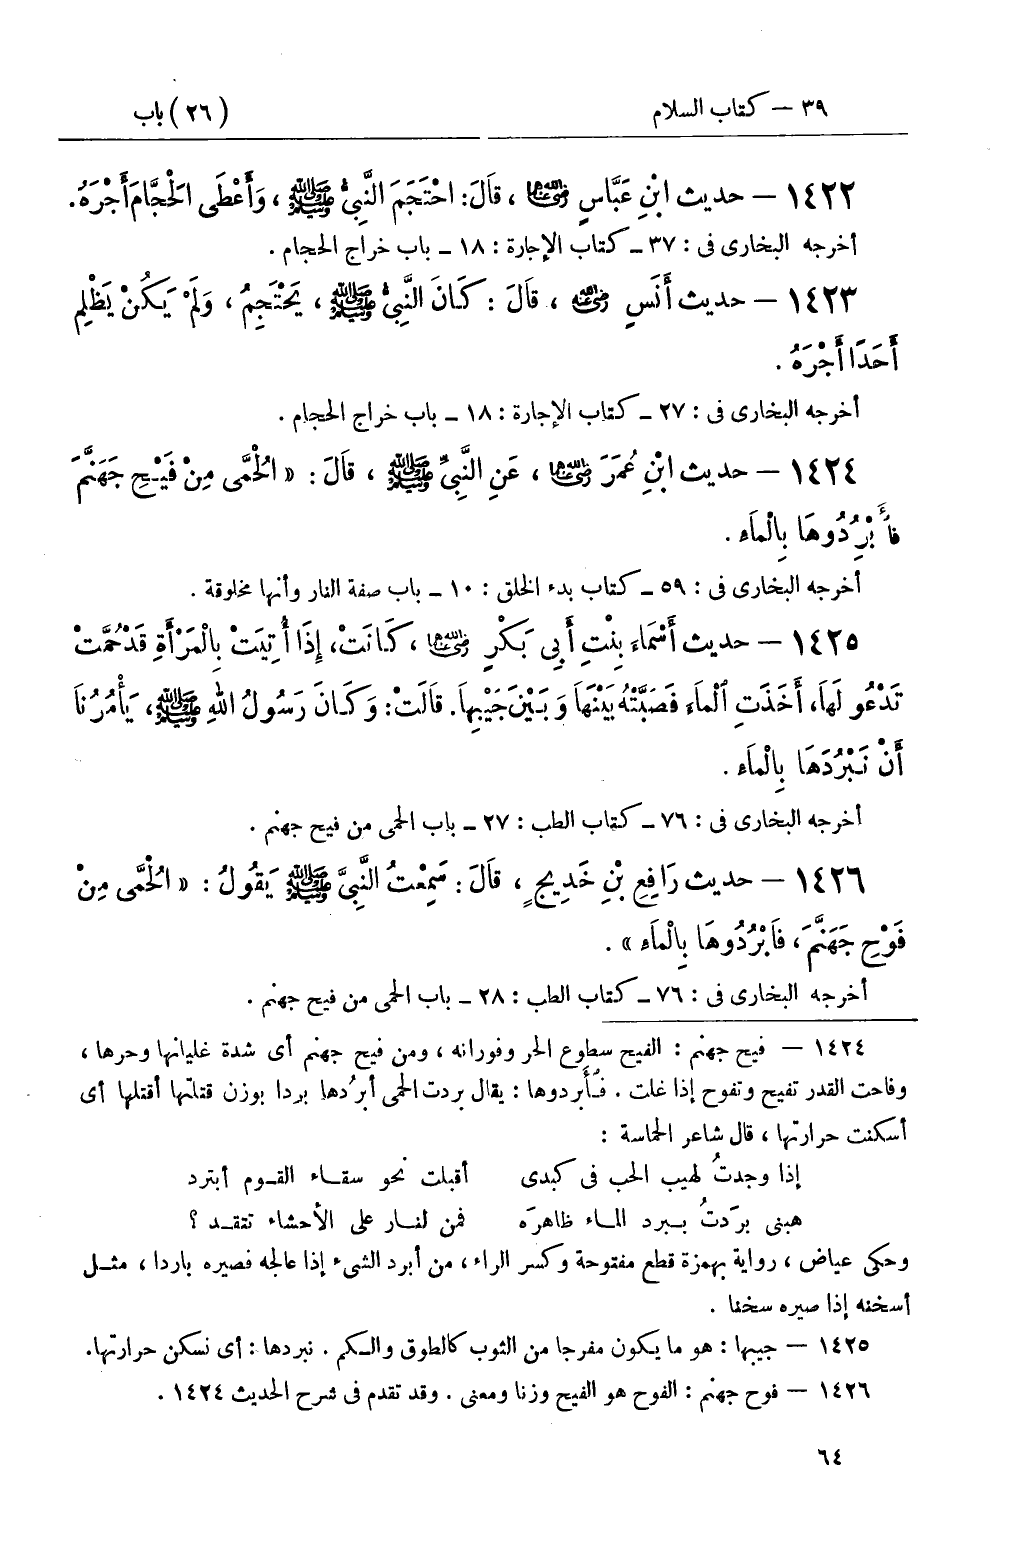 ٣٩ – كتاب السلام (٢٦) باب
١٤٢٢ – حديث ابْنِ عَبَّاسٍ رضي الله عنهما ، قَالَ: احْتَجَمَ النَّبِيُّ ﷺ ، وَأَعْطَى الْحَجَّامَ أَجْرَهُ.
أخرجه البخارى فى : ٣٧ – كتاب الإجارة : ١٨ – باب خراج الحجام .
١٤٢٣ – حديث أَنَسٍ رضي الله عنه ، قَالَ : كَانَ النَّبِيُّ ﷺ ، يَحْتَجِمُ ، وَلَمْ يَكُنْ يَظْلِم
أَحَدًا أَجْرَهُ .
أخرجه البخارى فى : ٢٧ – كتاب الإجارة : ١٨ – باب خراج الحجام .
١٤٢٤ – حديث ابْنِ عُمَرَ رضي الله عنهما ، عَنِ النَّبِيِّ ﷺ ، قَالَ : « الْحُمَّى مِنْ فَيْحِ جَهَنَّمَ
فَأَبْرُدُوهَا بِالْمَاءِ .
أخرجه البخارى فى : ٥٩ – كتاب بدء الخلق : ١٠ – باب صفة النار وأنها مخلوقة .
١٤٢٥ – حديث أَسْمَاءَ بِنْتِ أَبِي بَكْرٍ رضي الله عنهما ، كَانَتْ، إِذَا أُتِيَتْ بِالْمَرْأَةِ قَدْ حُمَّتْ
تَدْعُو لَهَا، أَخَذَتِ الْمَاءَ فَصَبَّتْهُ بَيْنَهَا وَبَيْنَ جَيْبِهَا. قَالَتْ: وَكَانَ رَسُولُ اللهِ ﷺ، يَأْمُرُنَا
أَنْ نَبْرُدَهَا بِالْمَاءِ .
أخرجه البخارى فى : ٧٦ – كتاب الطب : ٢٧ – باب الحمى من فيح جهنم .
١٤٢٦ – حديث رَافِعِ بْنِ خَدِيجٍ ، قَالَ : سَمِعْتُ النَّبِيَّ ﷺ يَقُولُ : « الْحُمَّى مِنْ
فَوْحِ جَهَنَّمَ، فَابْرُدُوهَا بِالْمَاءِ » .
أخرجه البخارى فى : ٧٦ – كتاب الطب : ٢٨ – باب الحمى من فيح جهنم .
١٤٢٤ – فيح جهنم : الفيح سطوع الحر وفورانه ، ومن فيح جهنم أى شدة غليانها وحرها ،
وفاحت القدر تفيح وتفوح إذا غلت . فَأَبردوها : يقال بردت الحمى أبرُدها بردا بوزن قتلتها أقتلها أى
أسكنت حرارتها ، قال شاعر الحماسة :
إذا وجدتُ لهيب الحب فى كبدى أقبلت نحو سقاء القوم أبترد
هبنى بَرَدتُ ببرد الماء ظاهرَه فمن لنار على الأحشاء تتقد ؟
وحكى عياض ، رواية بهمزة قطع مفتوحة وكسر الراء ، من أبرد الشىء إذا عالجه فصيره باردا ، مثل
أسخنه إذا صيره سخنا .
١٤٢٥ – جيبها : هو ما يكون مفرجا من الثوب كالطوق والكم . نبردها : أى نسكن حرارتها.
١٤٢٦ – فوح جهنم : الفوح هو الفيح وزنا ومعنى . وقد تقدم فى شرح الحديث ١٤٢٤ .
٦٤